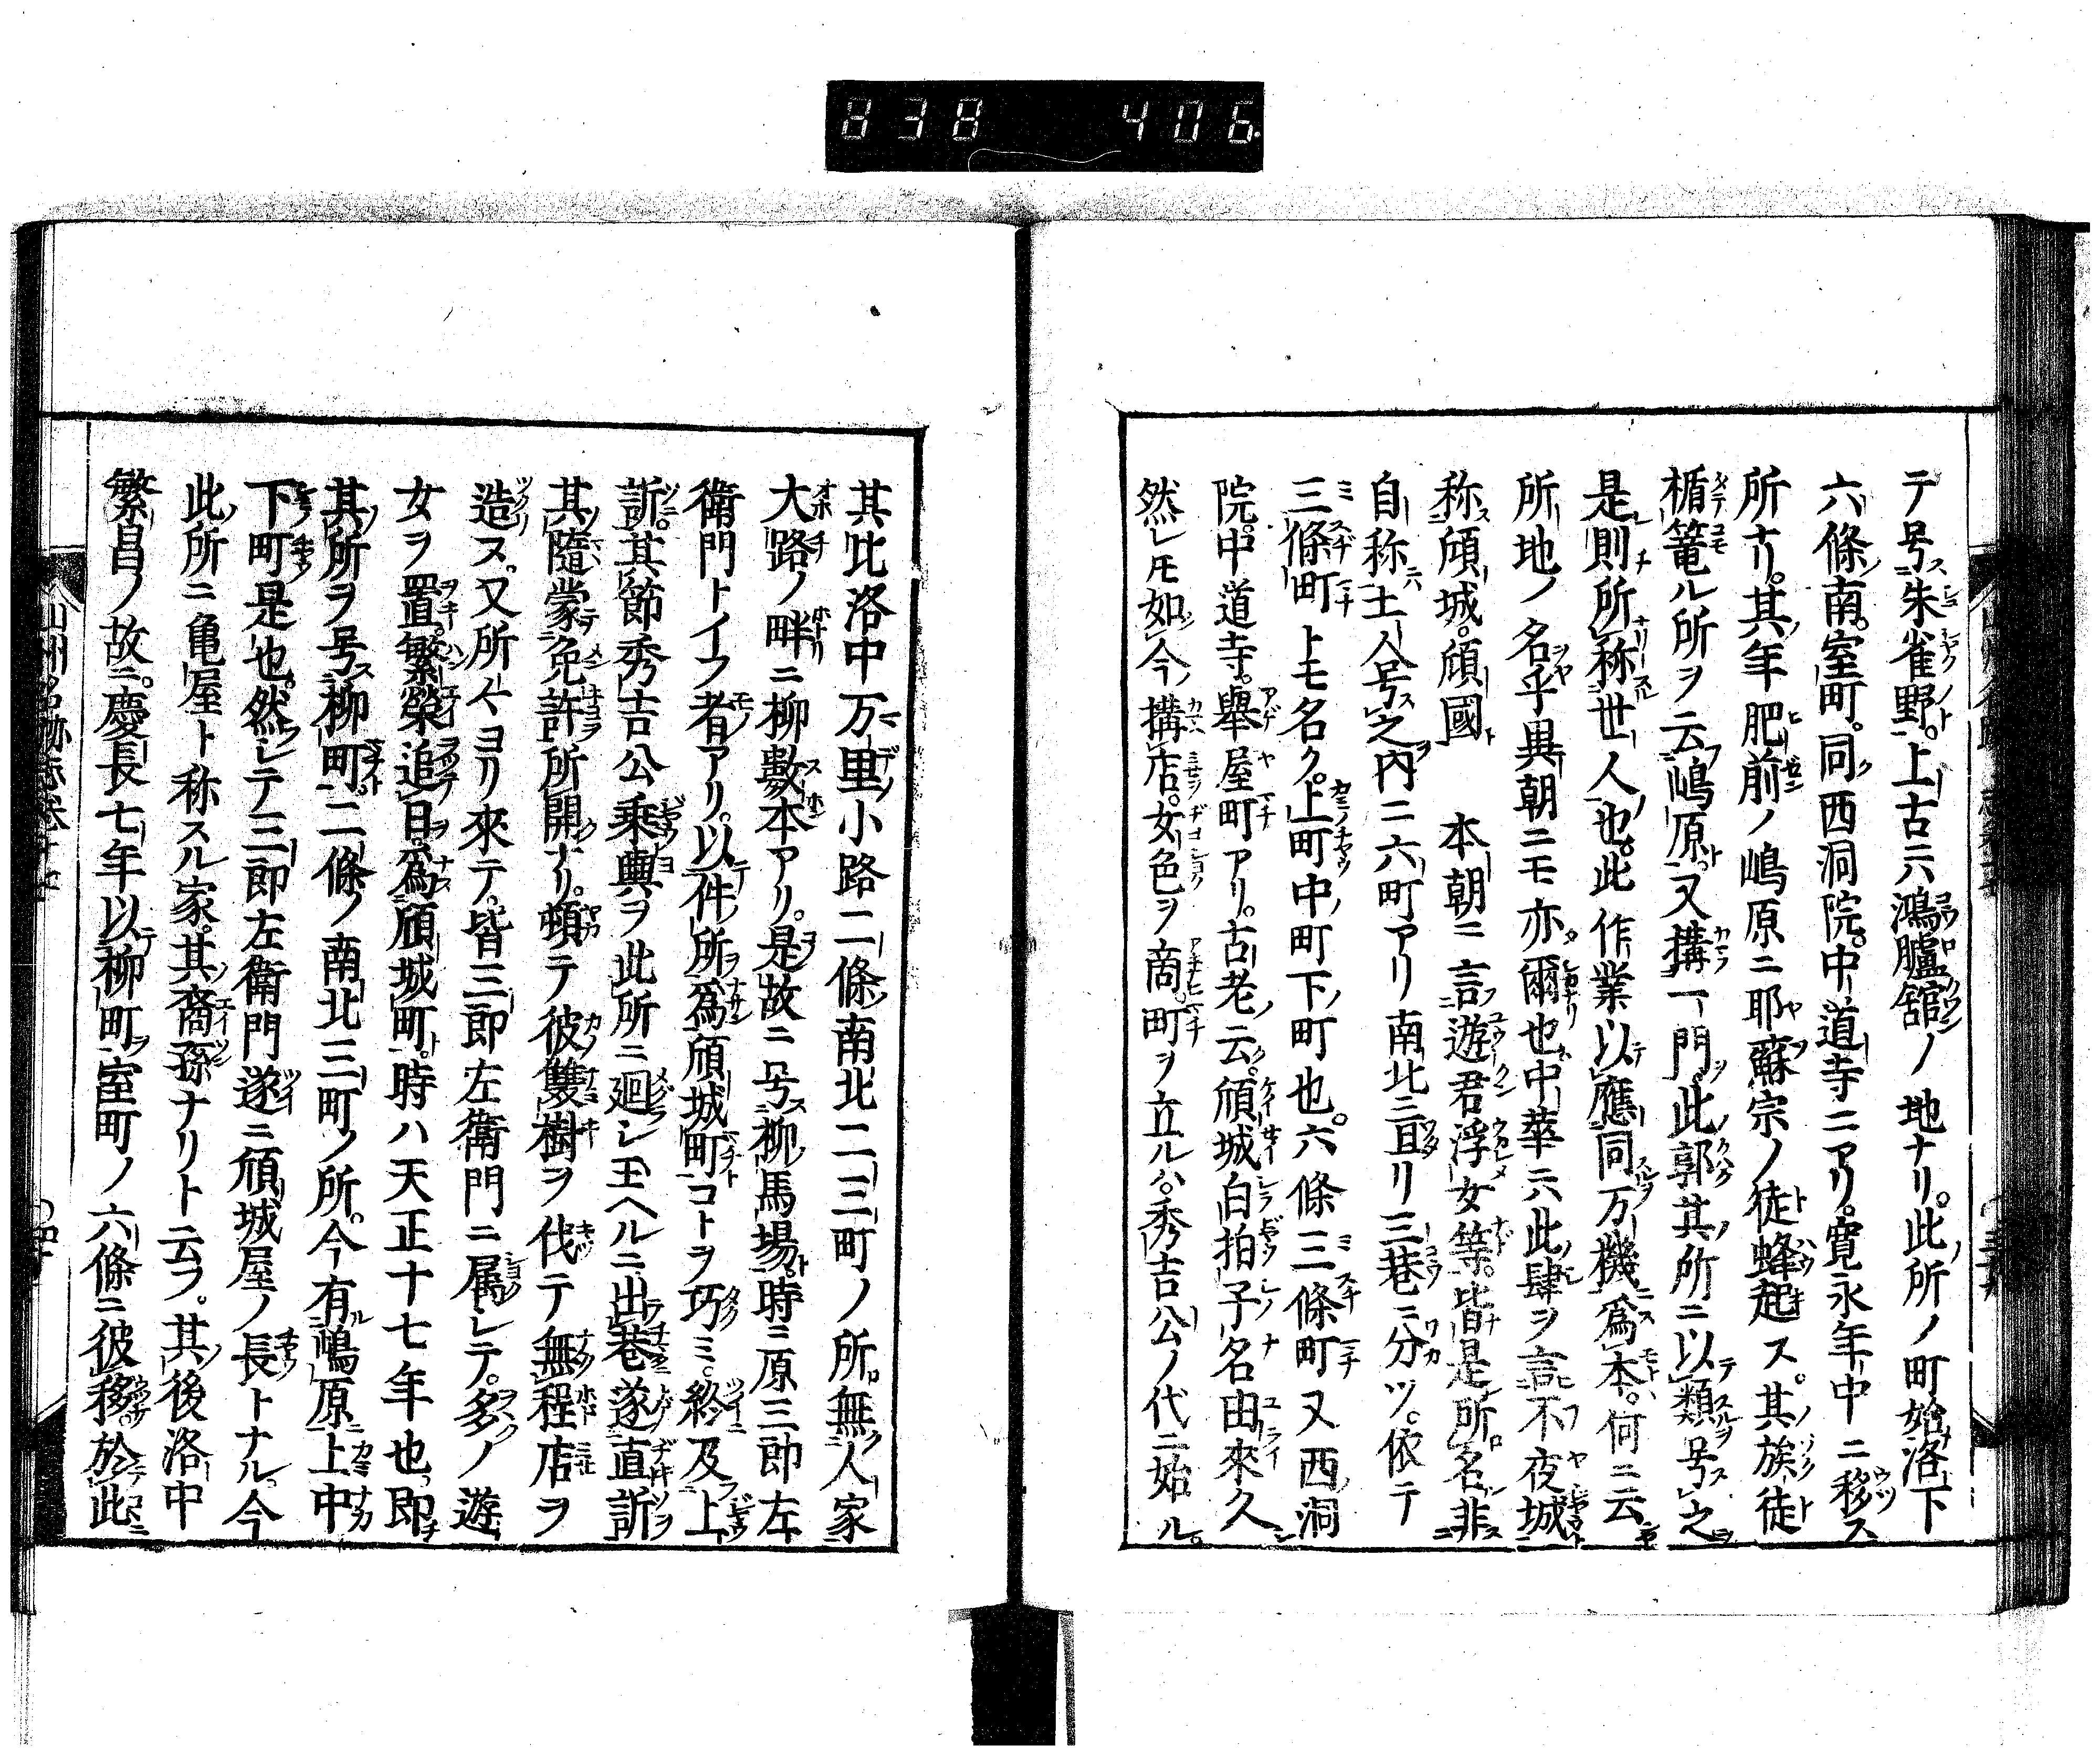 838 406
テ号朱雀野上古ニ六鴻臚舘ノ地ナリ。此所ノ町始洛下
六條南。室町。同西洞院。中道寺ニアリ。寛永年中ニ移ス
所ナリ。其年肥前ノ嶋原ニ耶蘇宗ノ徒蜂起ス。其族徒
楯篭ル所ヲ云嶋原又搆一門此郭其所ニ以類号之
是則所称世人也。此作業以應同万機為本。何ニ云
所地ノ名乎異朝ニモ亦爾也中華ニ六此肆ヲ言不夜城
称頎城。頎國　本朝ニ言遊君浮女等。皆是所名非
自称土人号之内ニ六町アリ南北ニ亘リ三巷ニ分ツ。依テ
三條町トモ名ク。上町中ノ町下ノ町也。六條三條町又西洞
院。中道寺。舉屋町アリ。古老云。頎城白拍子名由來久
然レモ如今搆店。女色ヲ商。町ヲ立ルハ。秀吉公ノ代ニ始ル。
其比洛中万里小路二條南北二三町ノ所無人家
大路ノ畔ニ柳數本アリ。是故ニ号柳馬場。時ニ原三郎左
衛門トイフ者アリ。以件所為頎城町コトヲ巧ミ。終及上
訴。其節秀吉公乗輿ヲ此所ニ廻シ玉ヘルニ出巷遂直訴
其隨蒙免許所開ナリ。頓テ彼雙樹ヲ伐テ無程店ヲ
造ス。又所々ヨリ來テ。皆三郎左衛門ニ属シテ。多ノ遊
女ヲ置。繁榮追日。為頎城町。時ハ天正十七年也。即
其所ヲ号柳町。二條ノ南北三町ノ所。今有嶋原上中
下町是也。然シテ三郎左衛門遂ニ頎城屋ノ長トナル。今
此所ニ亀屋ト称スル家。其裔孫ナリト云フ。其後洛中
繁昌ノ故ニ。慶長七年以柳町室町ノ六條ニ彼移。於此